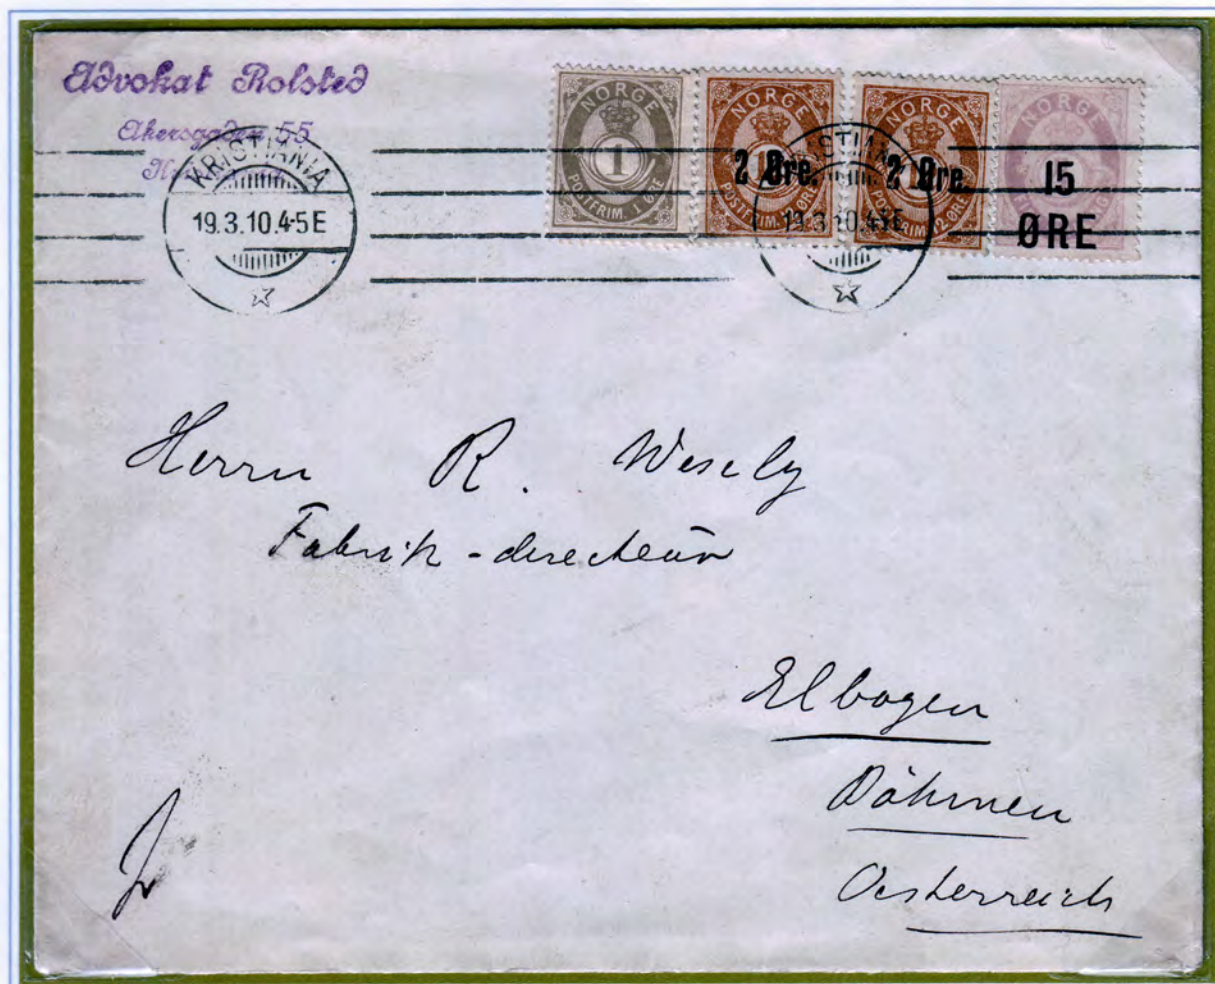 Advokat Rolsted
Akersgaden 55
KRISTIANIA
19.3.10.4-5E
NORGE
1
POSTFRIM. 1 ØRE
NORGE
2 Øre.
POSTFRIM. ØRE
KRISTIANIA
19.3.10.4-5E
NORGE
2 Øre.
POSTFRIM. 12 ØRE
NORGE
15
ØRE
Herrn R. Wesely
Fabrik-directeur
Elbogen
Böhmen
Oesterreich